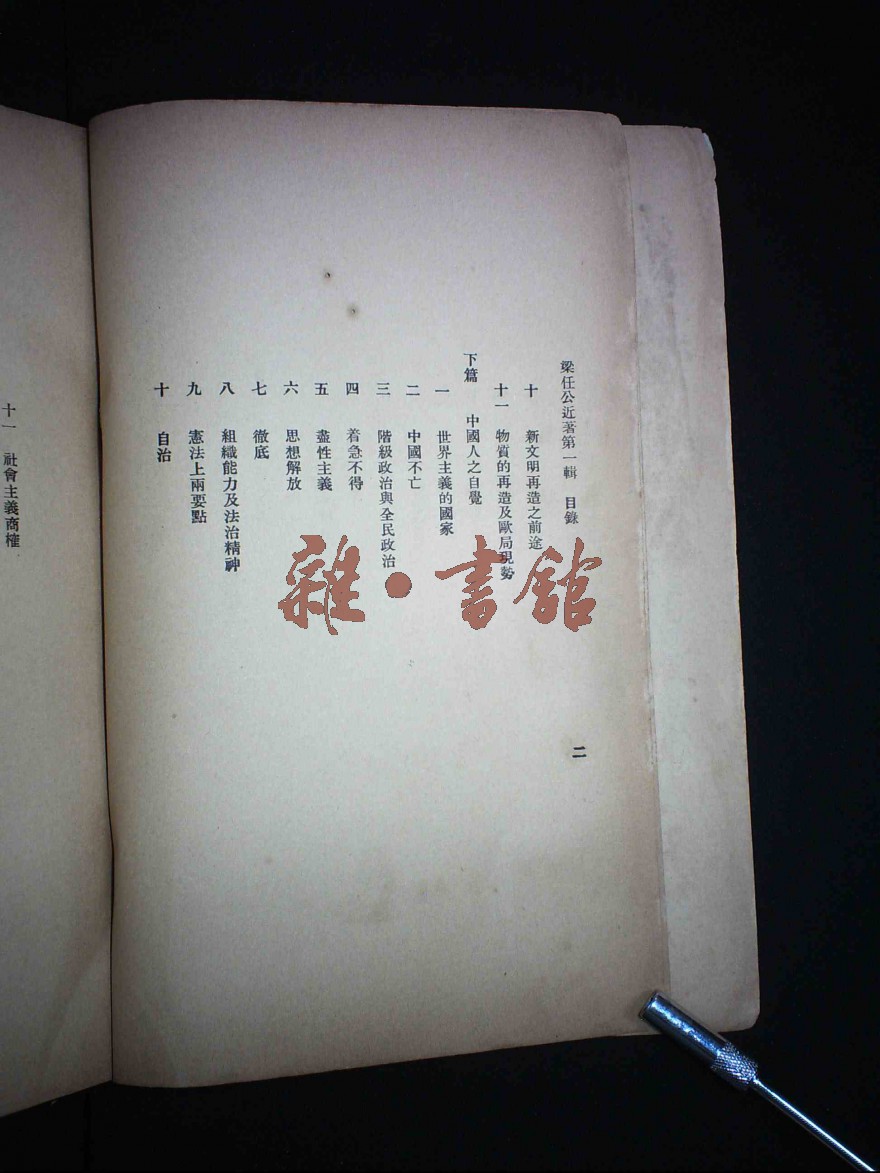 梁任公近著第一輯 目錄
十 新文明再造之前途
十一 物質的再造及歐局現勢
下篇 中國人之自覺
一 世界主義的國家
二 中國不亡
三 階級政治與全民政治
四 着急不得
五 盡性主義
六 思想解放
七 徹底
八 組織能力及法治精神
九 憲法上兩要點
十 自治
二
十一 社會主義商榷
雜·書館